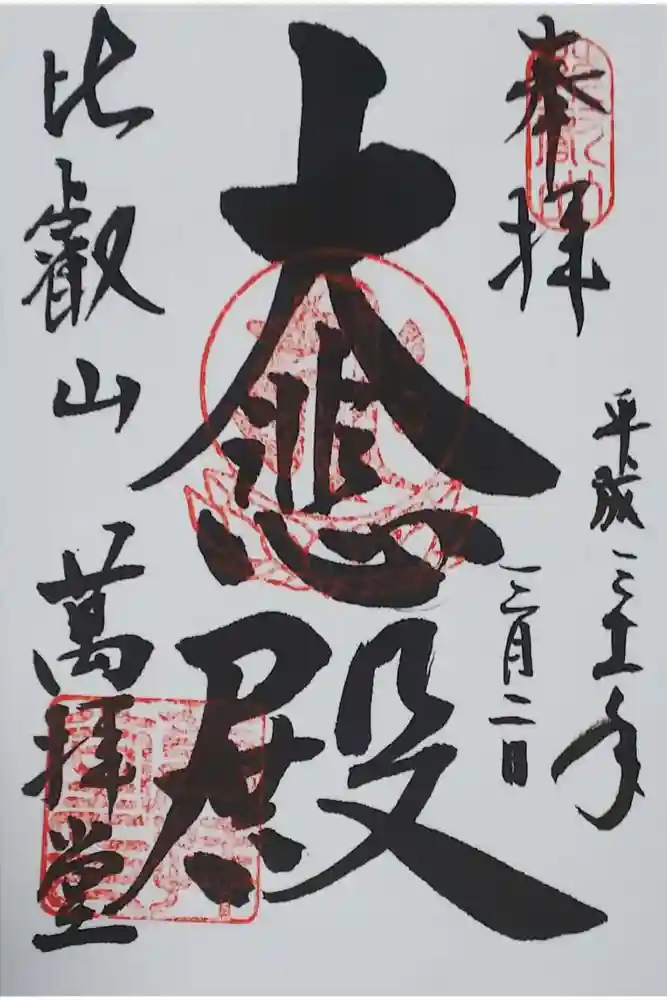 奉拝
平成三十一年
三月二日
大悲殿
比叡山
萬拝堂